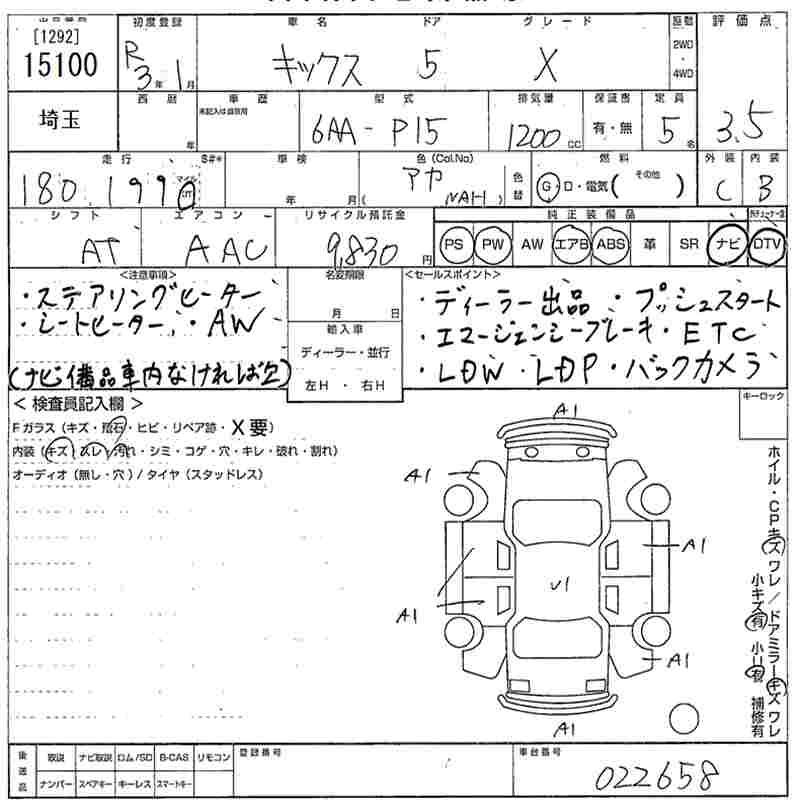 出品番号 初度登録 車名 ドア グレード 駆動 評価点
[1292]
15100 R3年1月 キックス 5 X 2WD・4WD
埼玉 西暦 年 車歴 未記入は自家用 型式 排気量 保証書 定員
6AA-P15 1200cc 有・無 5名 3.5
走行 S#* 車検 色(Col.No) 燃料 外装 内装
180,199 マイル km 年 月 アカ (NAH) 色替 G・D・電気 (その他) C B
シフト エアコン リサイクル預託金 純正装備品
AT AAC 9,830円 PS PW AW エアB ABS 革 SR ナビ DTV
<注意事項> 名変期限 <セールスポイント>
・ステアリングヒーター ・ディーラー出品 ・プッシュスタート
月 日
・シートヒーター ・AW 輸入車 ・エマージェンシーブレーキ・ETC
ディーラー・並行
(ナビ備品車内なければ欠) 左H・右H ・LDW・LDP・バックカメラ
<検査員記入欄> キーロック
Fガラス(キズ・飛石・ヒビ・リペア跡・X要)
内装(キズ・スレ・汚れ・シミ・コゲ・穴・キレ・破れ・割れ)
オーディオ(無し・穴)/タイヤ(スタッドレス)
A1
A1
A1
U1
A1
A1
A1
ホイル・CPキズ ワレ/ドアミラーキズ ワレ
小キズ有 小U有 補修有
後送品 取説 ナビ取説 ロム/SD B-CAS リモコン 登録番号 車台番号
ナンバー スペアキー キーレス スマートキー 022658